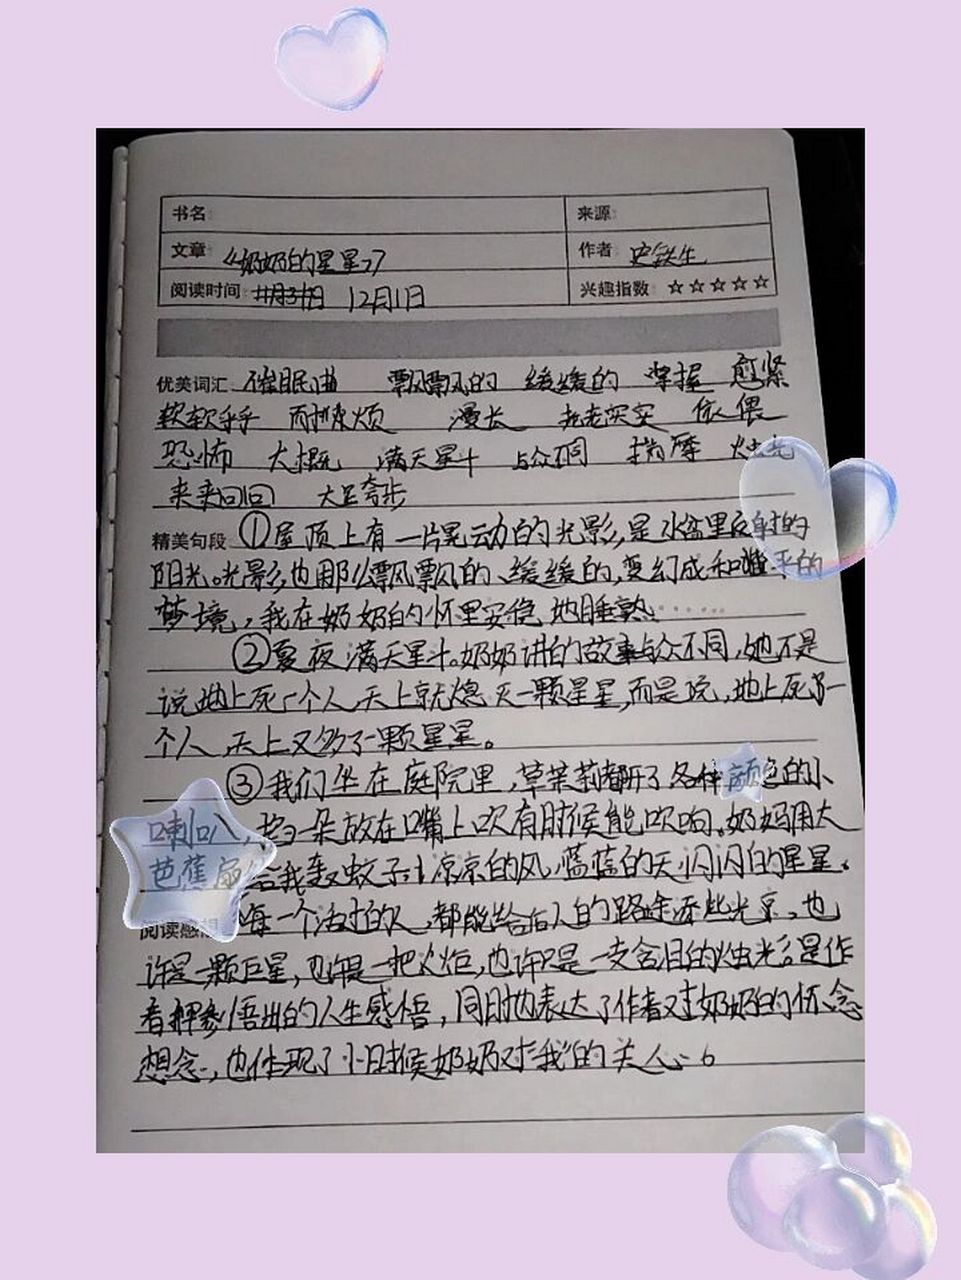 书名: 来源:
文章: 《奶奶的星星》 作者: 史铁生
阅读时间: 12月1日 兴趣指数: ☆☆☆☆☆
优美词汇 催眠曲 飘飘的 缓缓的 掌握 愈紧
软软乎乎 耐烦 漫长 老老实实 依偎
恐怖 大概 满天星斗 与众不同 烛光
来来回回 大足夸步
精美句段 ①屋顶上有一片晃动的光影,是水盆里反射的
阳光。光影也那么飘飘的、缓缓的,变幻成和平的
梦境,我在奶奶的怀里安稳地睡熟……
②夏夜,满天星斗。奶奶讲的故事与众不同,她不是
说地上死一个人,天上就熄灭一颗星星,而是说,地上死了一
个人,天上又多了一颗星星。
③我们坐在庭院里,草茉莉都开了,各种颜色的小
喇叭,掐一朵放在嘴上吹,有时候能吹响。奶奶用大
芭蕉扇给我轰蚊子。凉凉的风,蓝蓝的天,闪闪的星星。
阅读感想 每一个活过的人,都能给后人的路途添些光亮,也
许是一颗巨星,也许是一把火炬,也许只是一支含泪的烛光"是作
者 悟出的人生感悟,同时也表达了作者对奶奶的怀念
想念,也体现了小时候奶奶对"我"的关心。